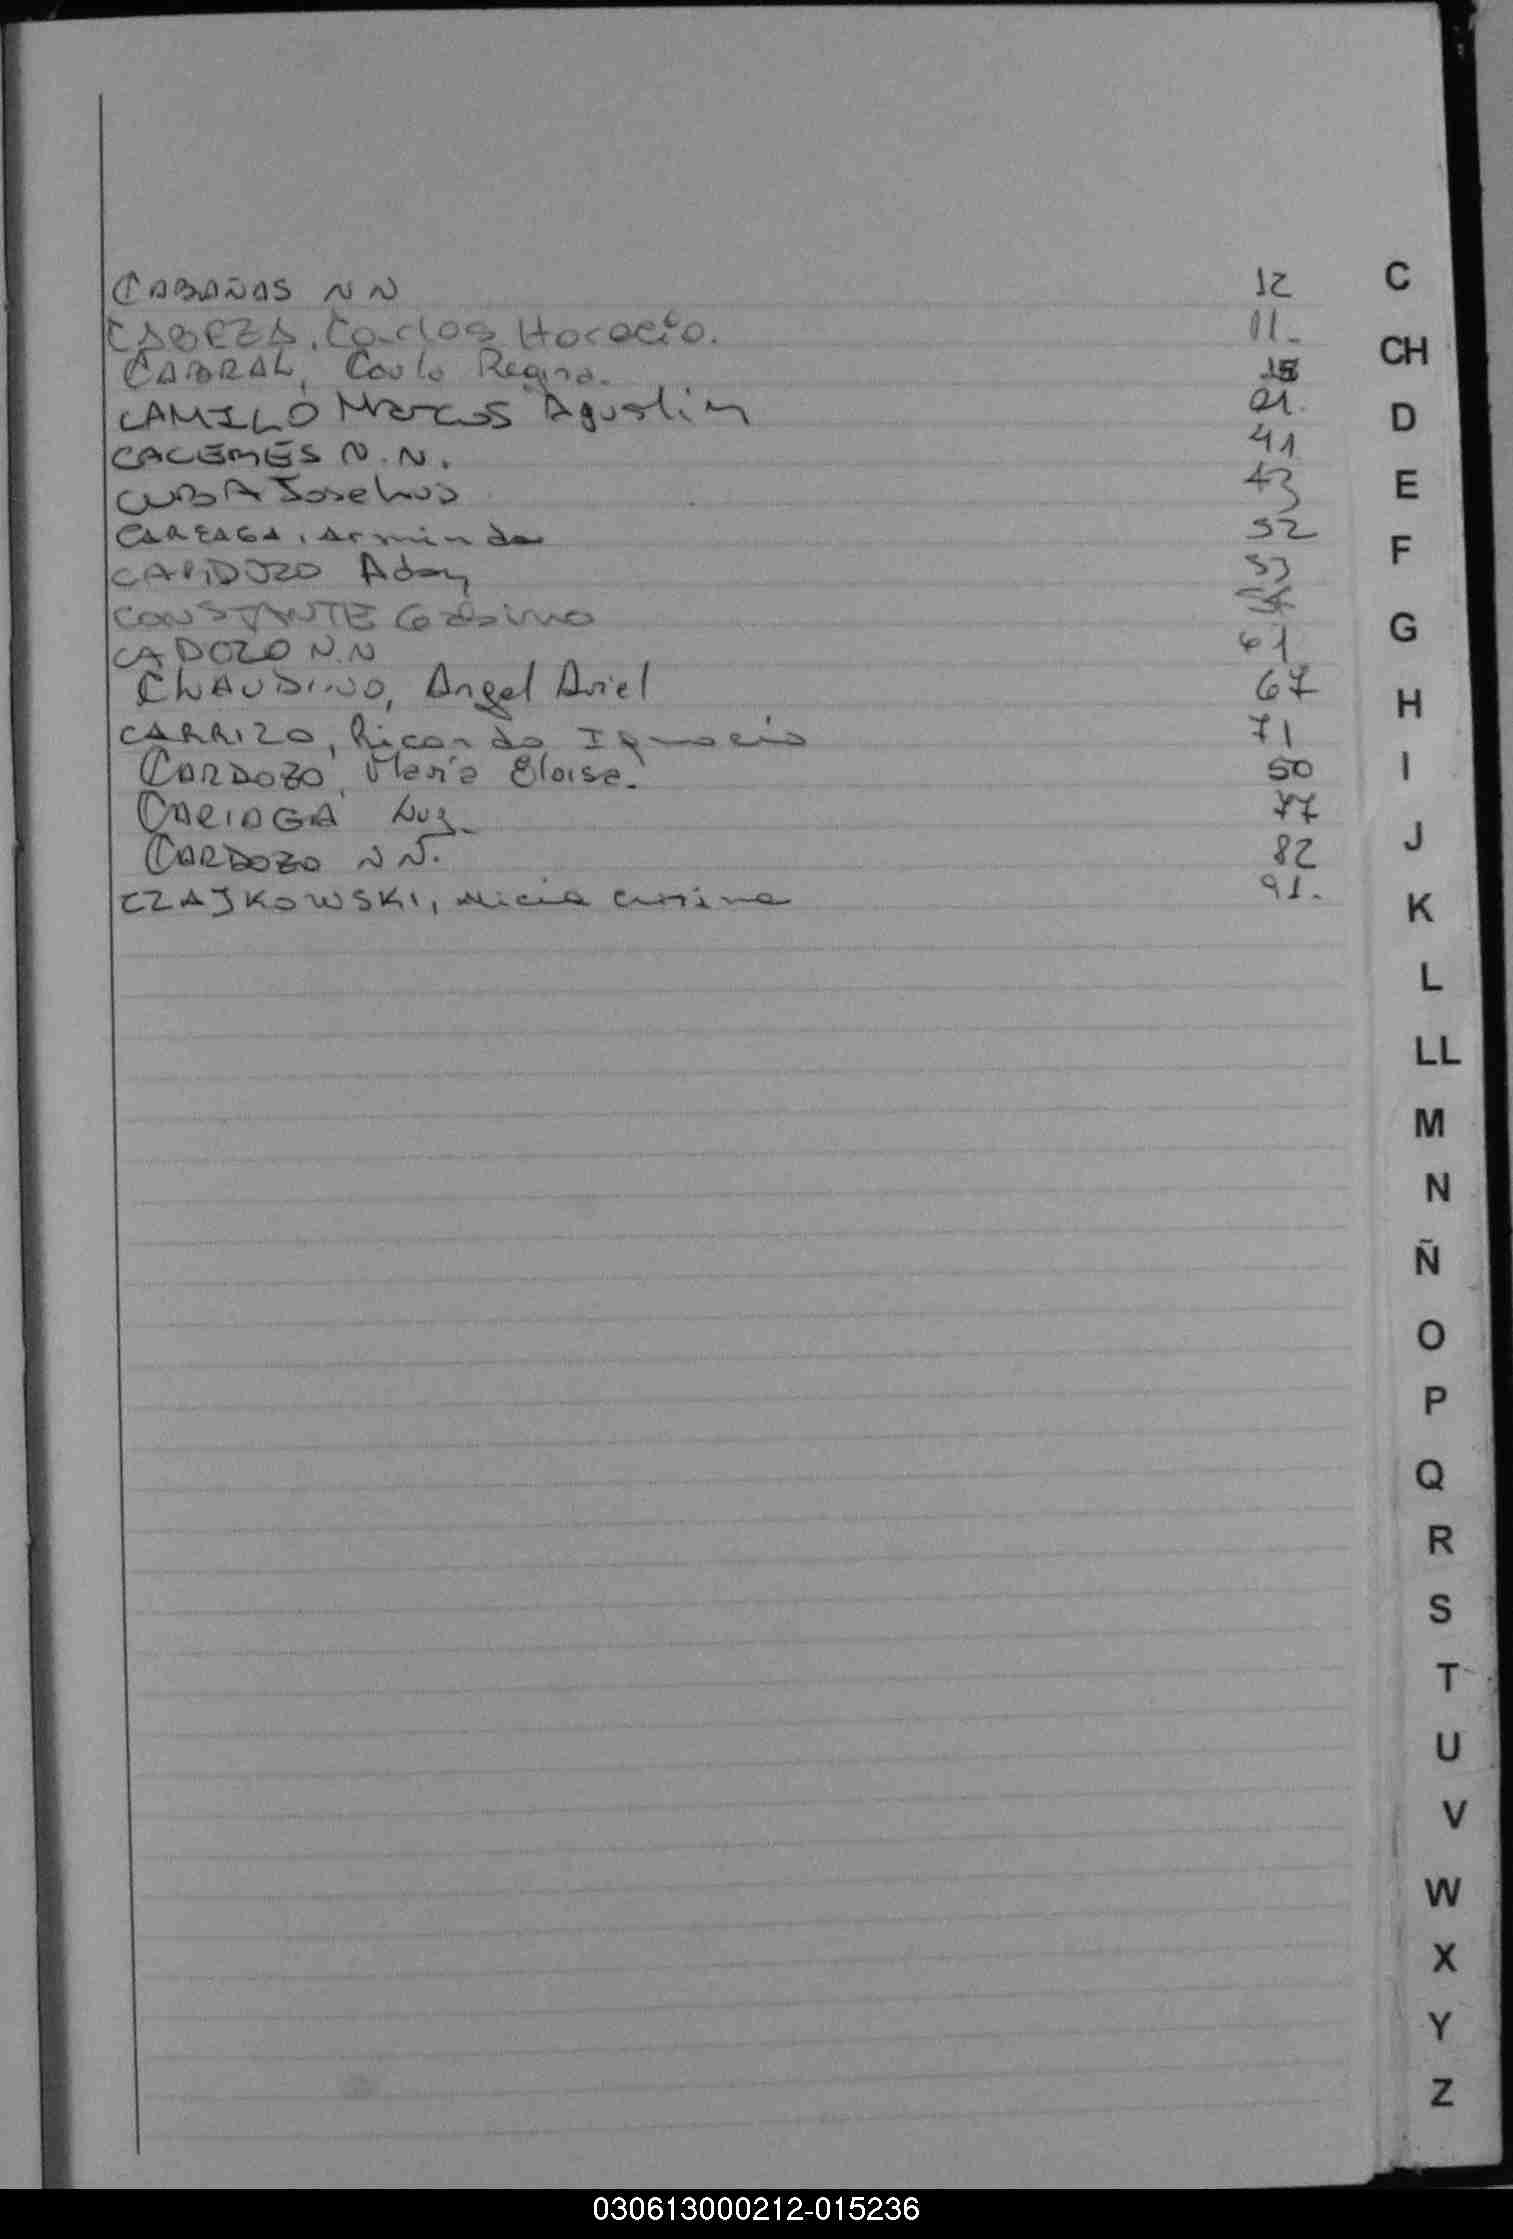 CABAÑAS NN 12
CABEZA, Carlos Horacio. 11.
CABRAL, Carla Regina. 15
CAMILO Marcos Agustin 21.
CACERES N.N. 41
CUBA Jose Luis 43
CAREAGA, Arminda 52
Adan 53
CONSTANTE
CADOZO N.N 61
CLAUDINO, Angel Ariel 67
CARRIZO, Ricardo Ignacio 71
CARDOZO, Maria Eloisa. 50
CARIAGA Luz. 77
CARDOZO NN. 82
CZAJKOWSKI, 91.
C
CH
D
E
F
G
H
I
J
K
L
LL
M
N
Ñ
O
P
Q
R
S
T
U
V
W
X
Y
Z
030613000212-015236